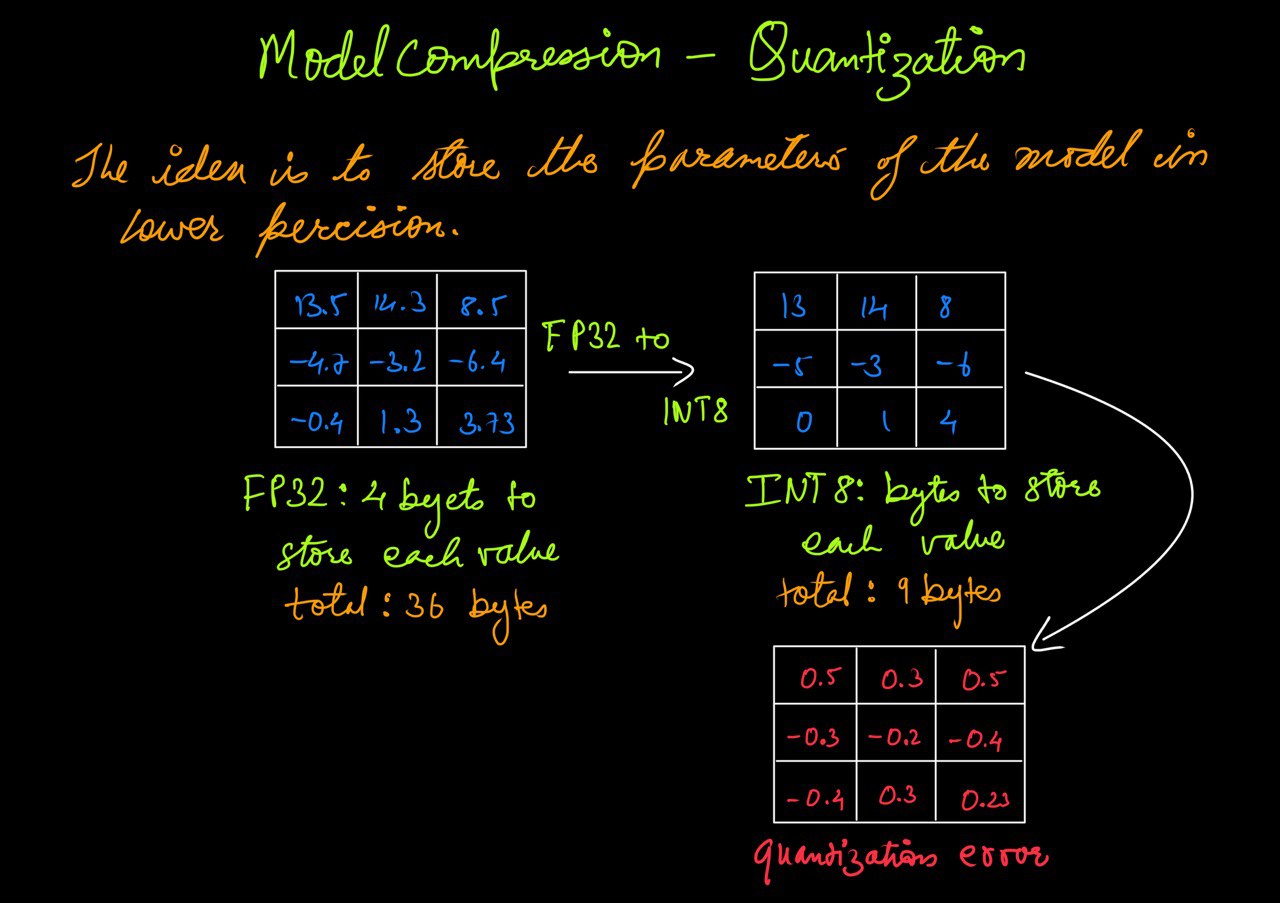 Model Compression - Quantization
The idea is to store the parameters of the model in
lower percision.
13.5 14.3 8.5
-4.7 -3.2 -6.4
-0.4 1.3 3.73
FP32 to
INT8
13 14 8
-5 -3 -6
0 1 4
FP32: 4 byets to
store each value
total: 36 bytes
INT 8: bytes to store
each value
total: 9 bytes
0.5 0.3 0.5
-0.3 -0.2 -0.4
-0.4 0.3 0.23
quantization error